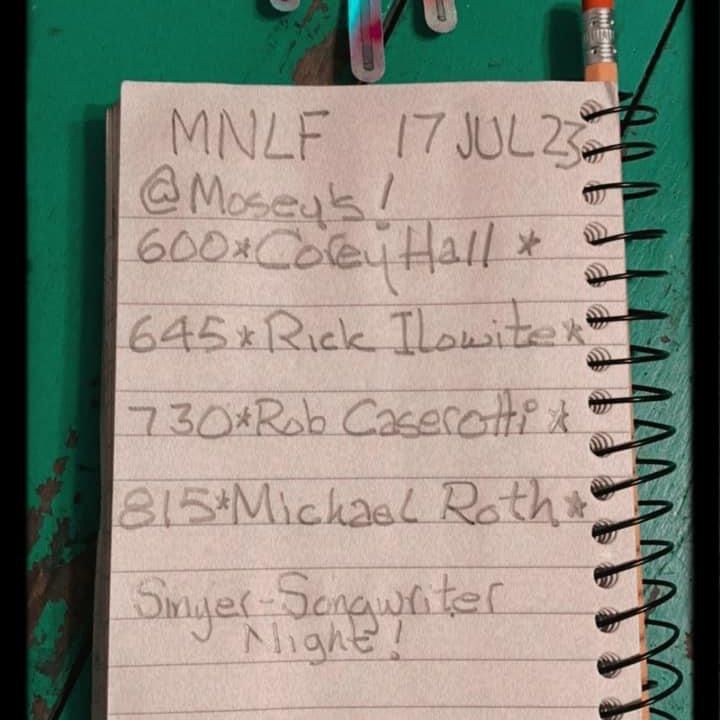 MNLF 17 JUL 23
@Mosey's!
600*Corey Hall *
645*Rick Ilowite*
730*Rob Caserotti *
815*Michael Roth*
Singer-Songwriter
Night!